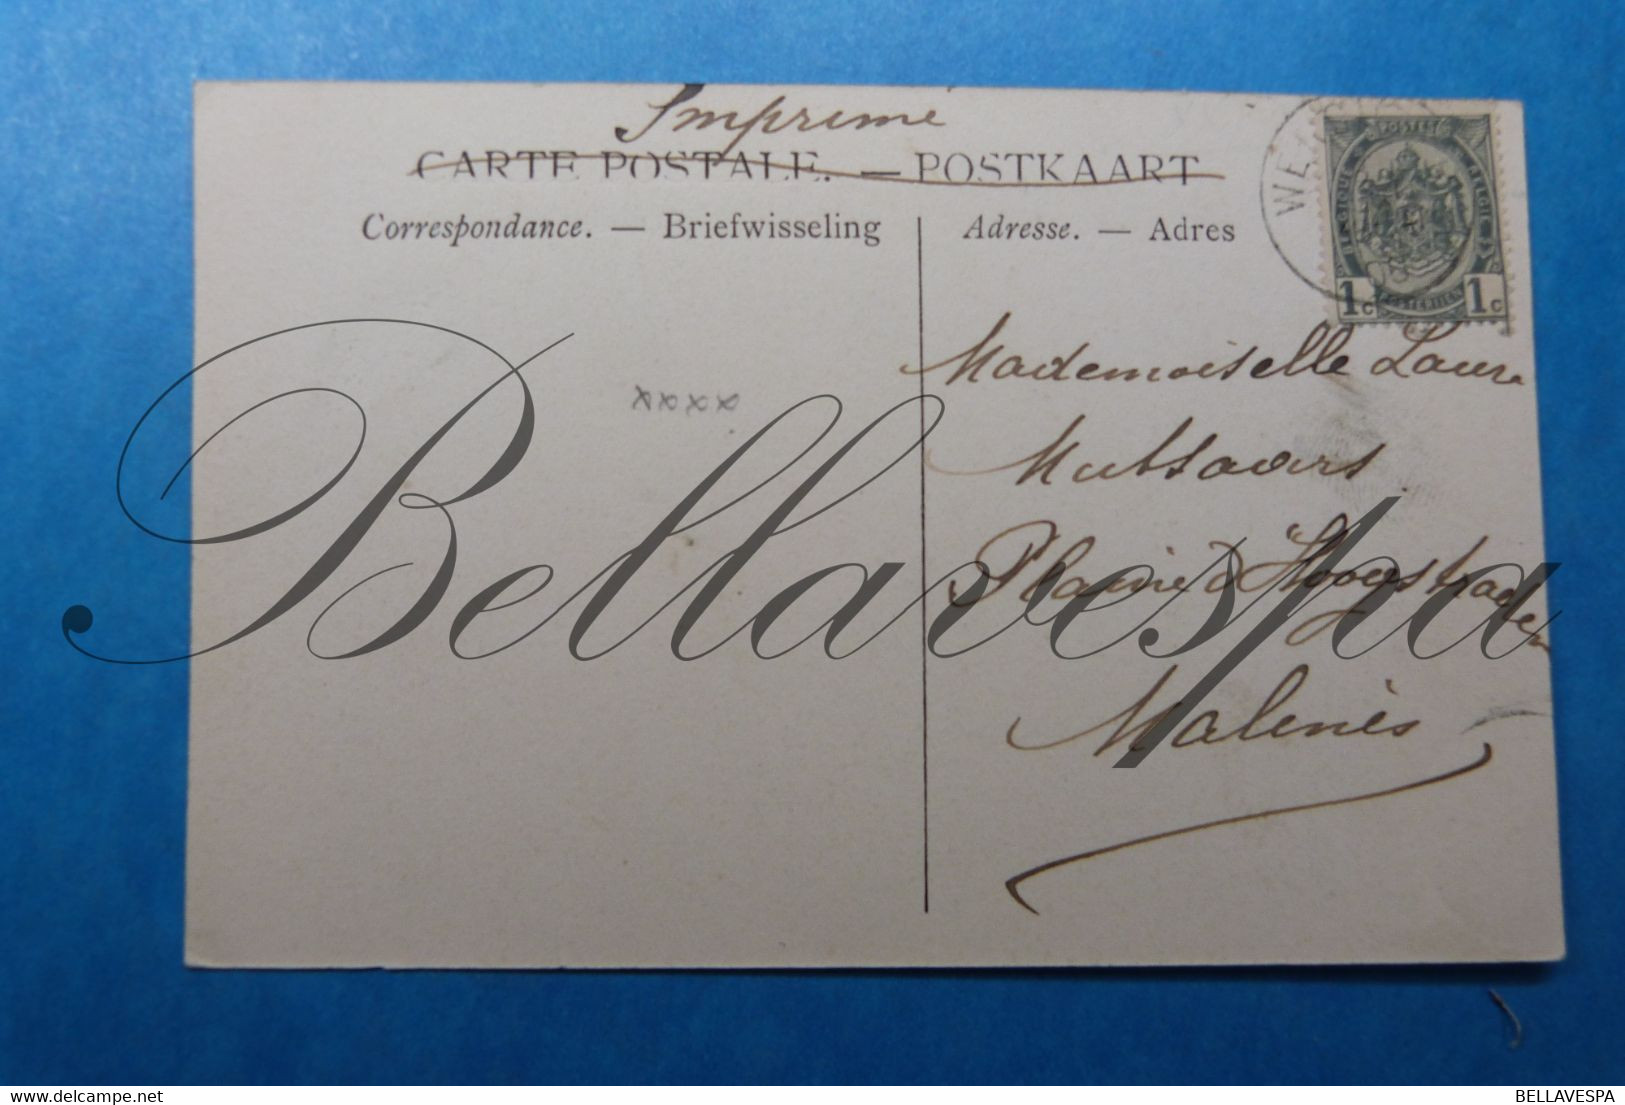 Imprimé
CARTE POSTALE. — POSTKAART
Correspondance. — Briefwisseling
Adresse. — Adres
POSTES
1c 1c
Mademoiselle Laura
Mutsaars
Plaine d'Hoogstraden
Malines
Bellavespa
delcampe.net
BELLAVESPA